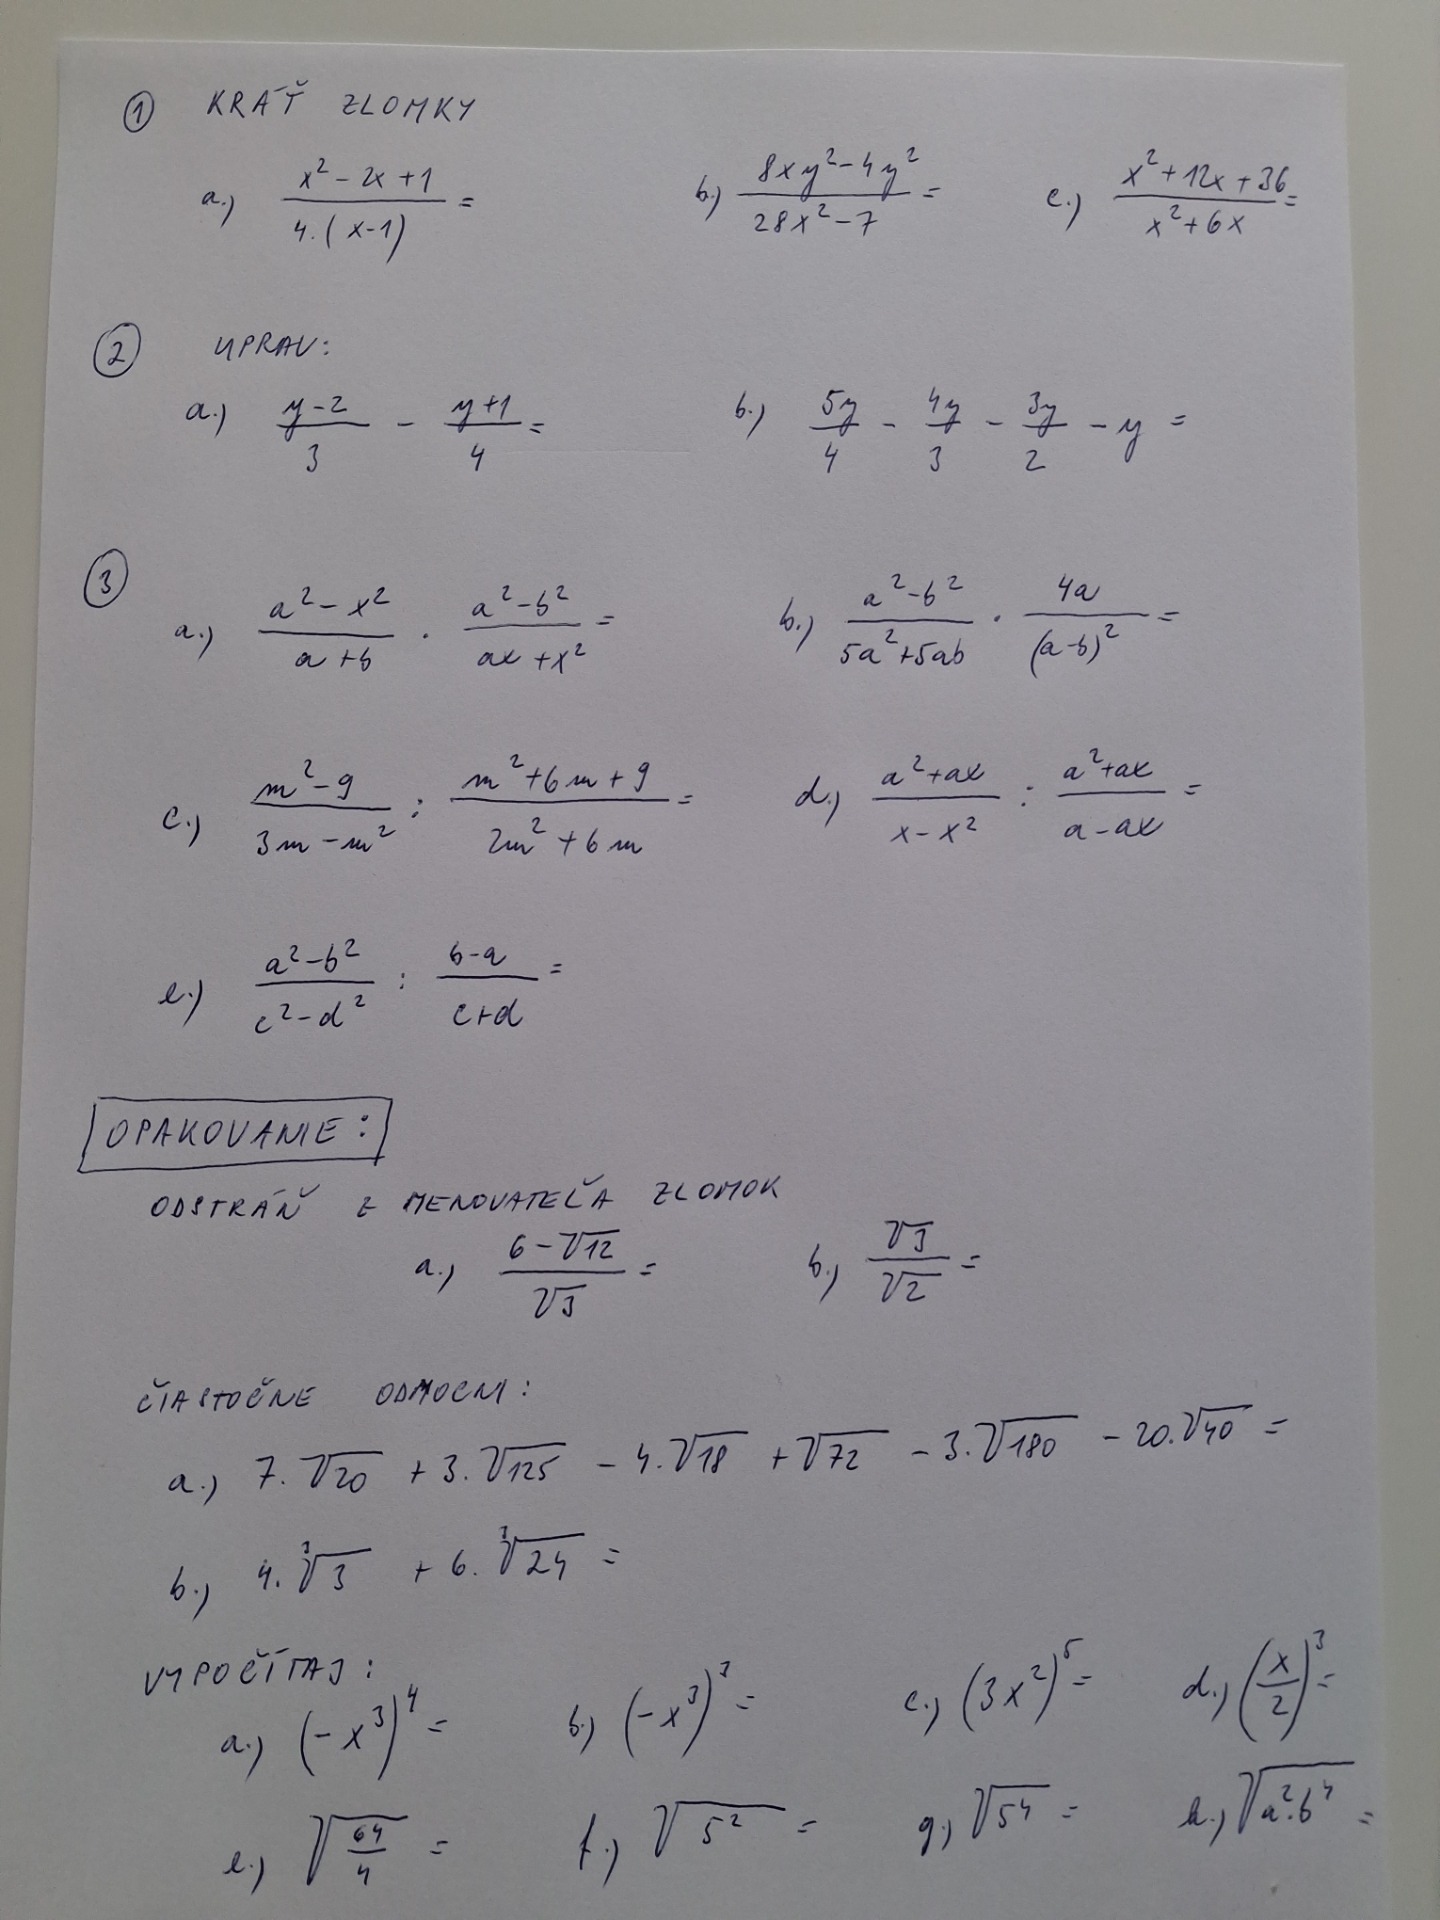 ① KRÁŤ ZLOMKY
a.) (x² - 2x + 1)/(4.(x-1)) = b.) (8xy² - 4y²)/(28x² - 7) = c.) (x² + 12x + 36)/(x² + 6x) =
② UPRAV:
a.) (y-2)/3 - (y+1)/4 = b.) 5y/4 - 4y/3 - 3y/2 - y =
③
a.) (a² - x²)/(a + b) . (a² - b²)/(ax + x²) = b.) (a² - b²)/(5a² + 5ab) . 4a/(a-b)² =
c.) (m² - 9)/(3m - m²) : (m² + 6m + 9)/(2m² + 6m) = d.) (a² + ax)/(x - x²) : (a² + ax)/(a - ax) =
e.) (a² - b²)/(c² - d²) : (b-a)/(c+d) =
OPAKOVANIE:
ODSTRÁŇ Z MENOVATEĽA ZLOMOK
a.) (6 - √12)/√3 = b.) √3/√2 =
ČIASTOČNE ODMOCNI:
a.) 7.√20 + 3.√125 - 4.√18 + √72 - 3.√180 - 20.√40 =
b.) 4.∛3 + 6.∛24 =
VYPOČÍTAJ:
a.) (-x³)⁴ = b.) (-x³)³ = c.) (3x²)⁵ = d.) (x/2)³ =
e.) √(64/4) = f.) √5² = g.) √5⁴ = h.) √a².b⁴ =